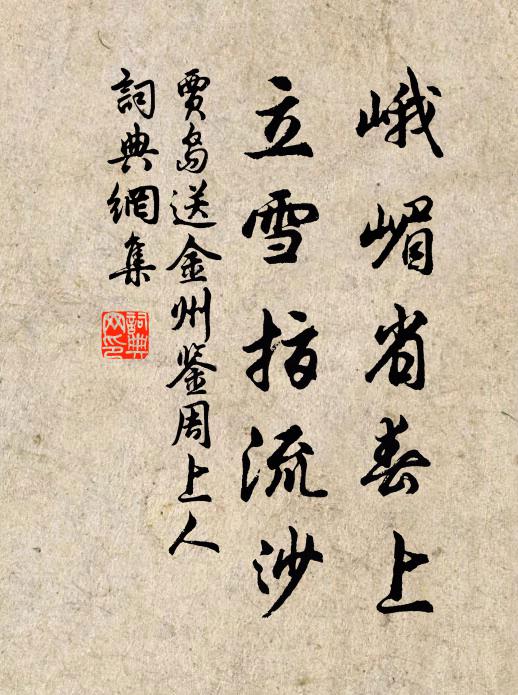 峨嵋省春上
立雪指流沙
賈島送金州鉴周上人
詞典網集
詞典
网印